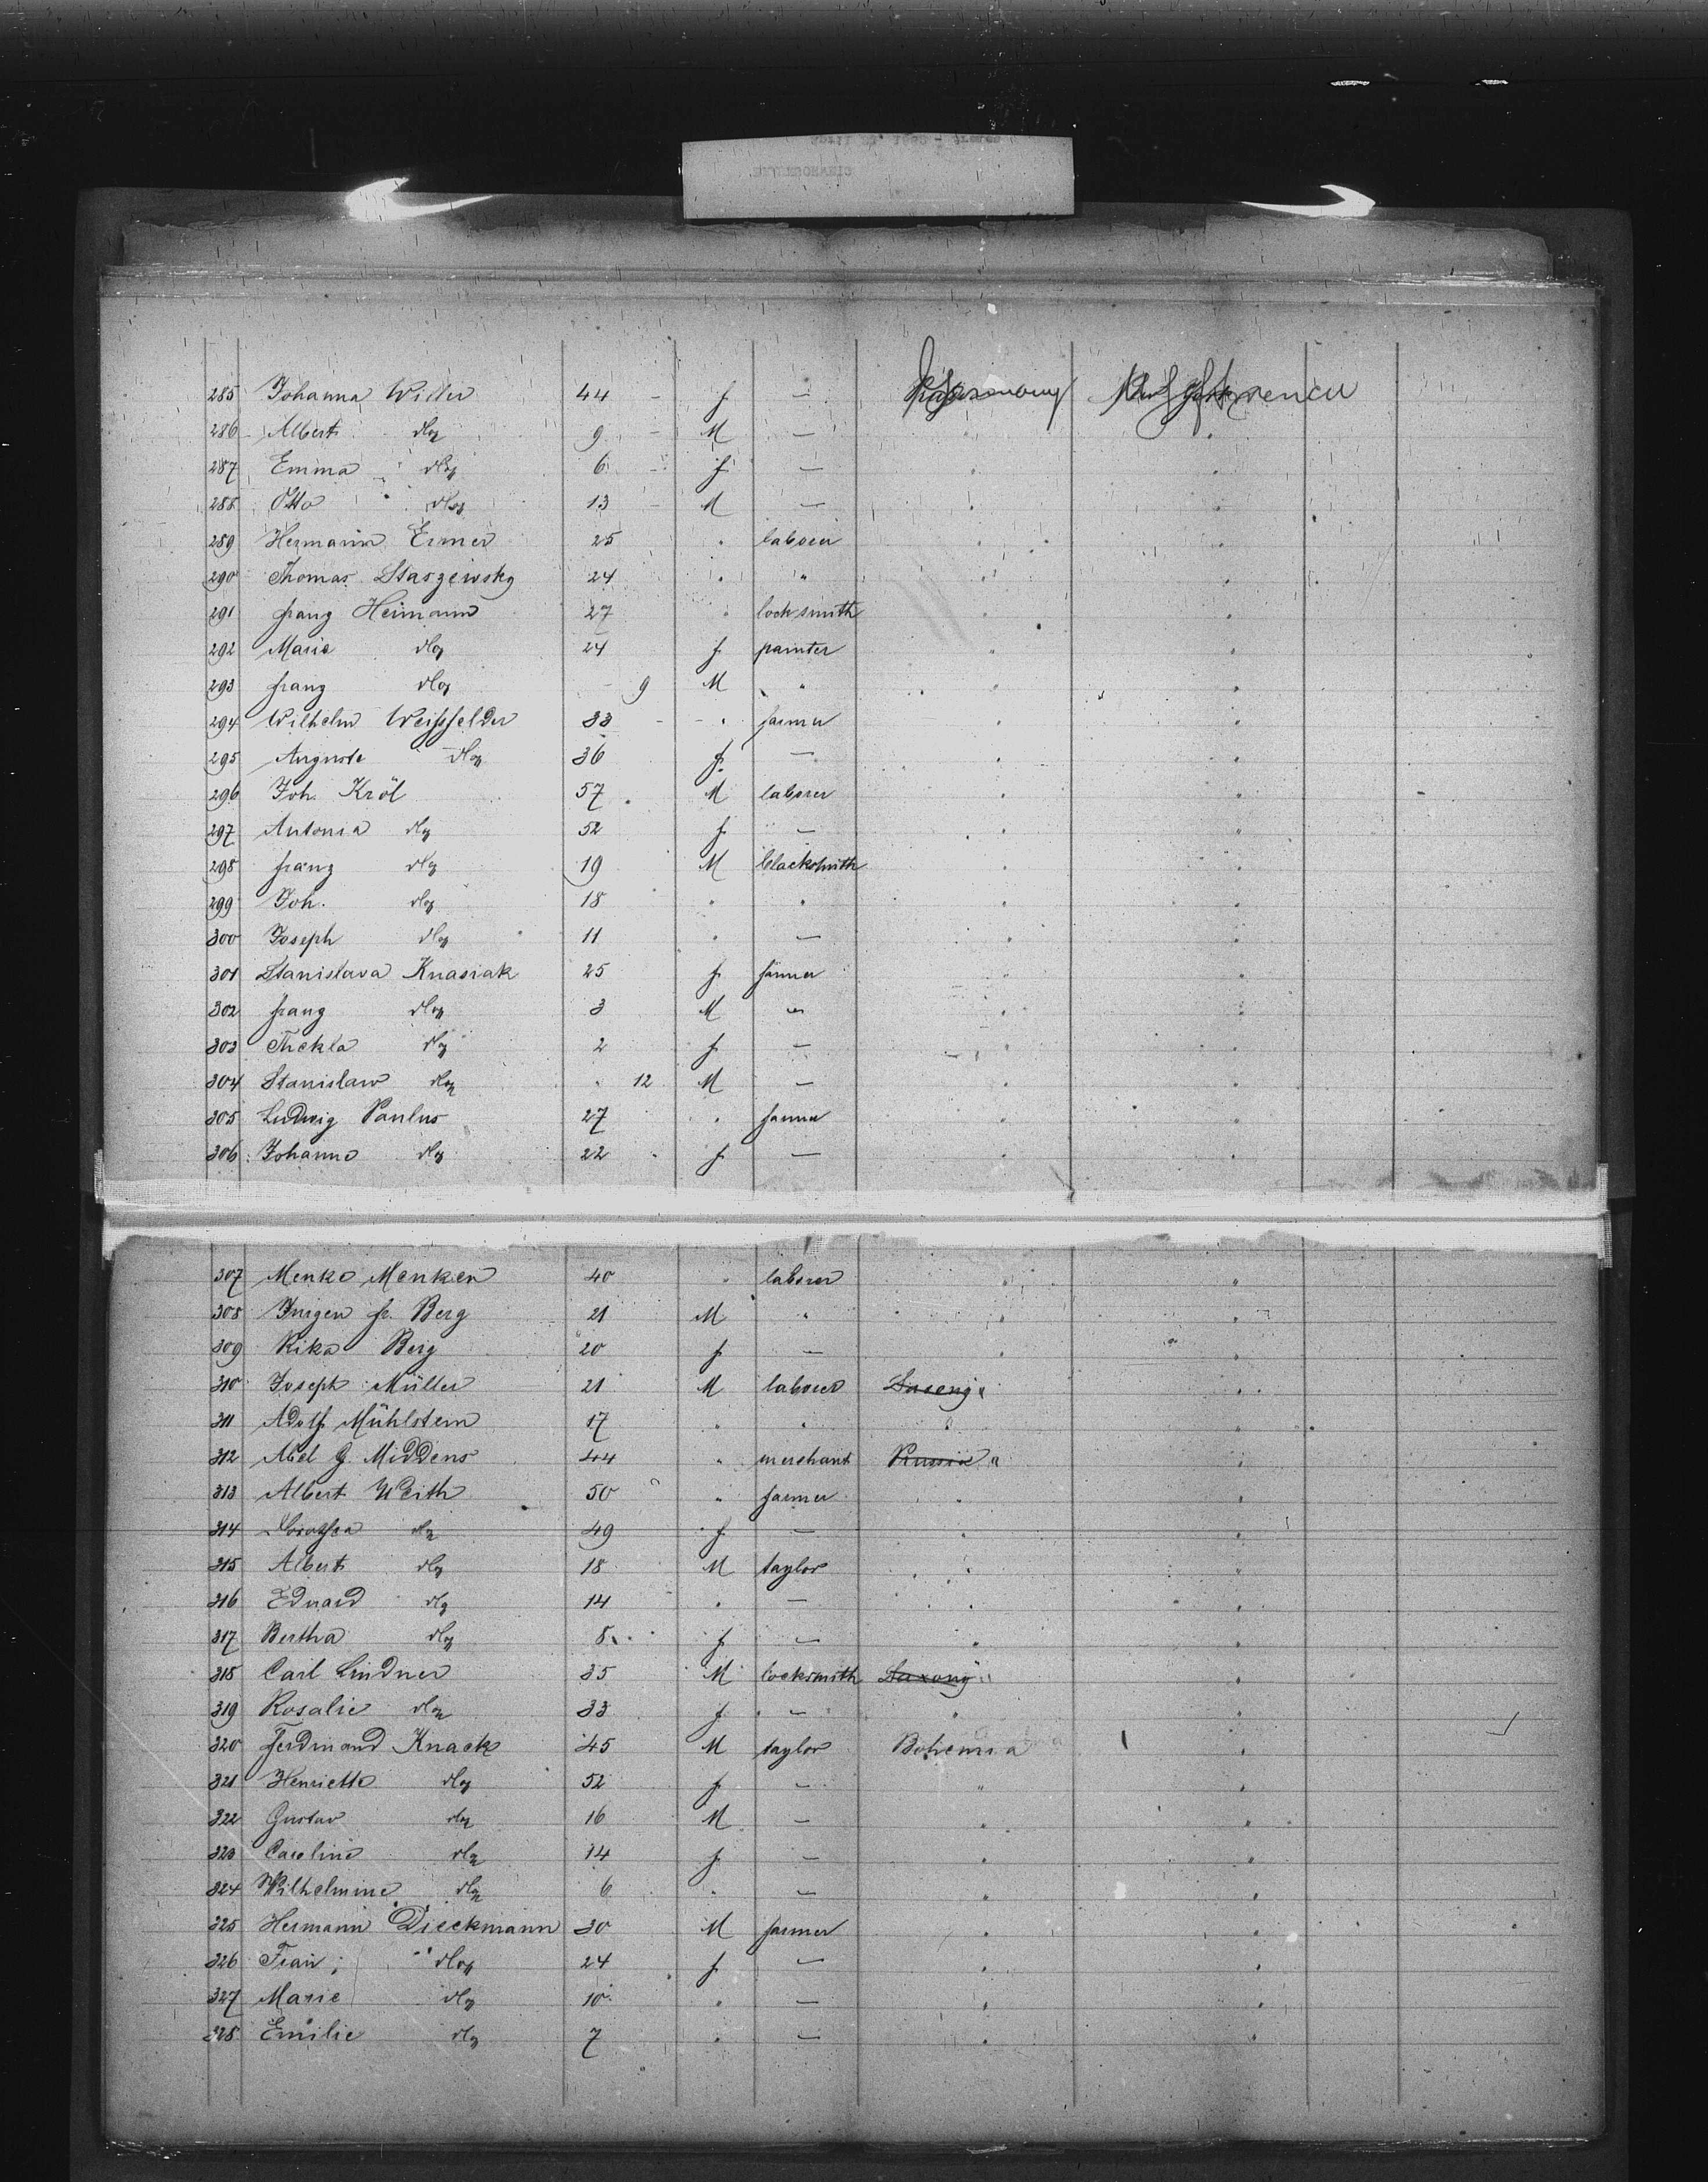 285 Johanna Witter 44 - f — Germany U S of America
286 Albert dto 9 - M — " "
287 Emma dto 6 - f — " "
288 Otto dto 13 - M — " "
289 Hermann Ermer 25 " laborer " "
290 Thomas Staszewsky 24 " " " "
291 Franz Heimann 27 " locksmith " "
292 Marie dto 24 f painter " "
293 Franz dto - 9 M " " "
294 Wilhelm Weissfelder 33 - " farmer " "
295 Auguste dto 36 f — " "
296 Joh. Król 57 M laborer " "
297 Antonia dto 52 f — " "
298 Franz dto 19 M blacksmith " "
299 Joh. dto 18 " " " "
300 Joseph dto 11 " — " "
301 Stanislava Knasiak 25 f farmer " "
302 Franz dto 3 M " " "
303 Thekla dto 2 f — " "
304 Stanislaw dto " 12 M — " "
305 Ludwig Paulus 27 " farmer " "
306 Johanne dto 22 f — " "
307 Menko Menken 40 " laborer " "
308 Jurgen fr. Berg 21 M " " "
309 Rika Berg 20 f — " "
310 Joseph Müller 21 M laborer " "
311 Adolf Mühlstein 17 " " " "
312 Abel G. Middens 44 " merchant Russia " "
313 Albert Weith 50 " farmer " "
314 Dorothea dto 49 f — " "
315 Albert dto 18 M taylor " "
316 Eduard dto 14 " — " "
317 Bertha dto 8 f — " "
318 Carl Lindner 35 M locksmith Saxony " "
319 Rosalie dto 33 f — " "
320 Ferdinand Knack 45 M taylor Bohemia "
321 Henriette dto 52 f — " "
322 Gustav dto 16 M — " "
323 Caroline dto 14 f — " "
324 Wilhelmine dto 6 " — " "
325 Hermann Dieckmann 30 M farmer " "
326 Frau dto 24 f — " "
327 Marie dto 10 " — " "
328 Emilie dto 7 " — " "